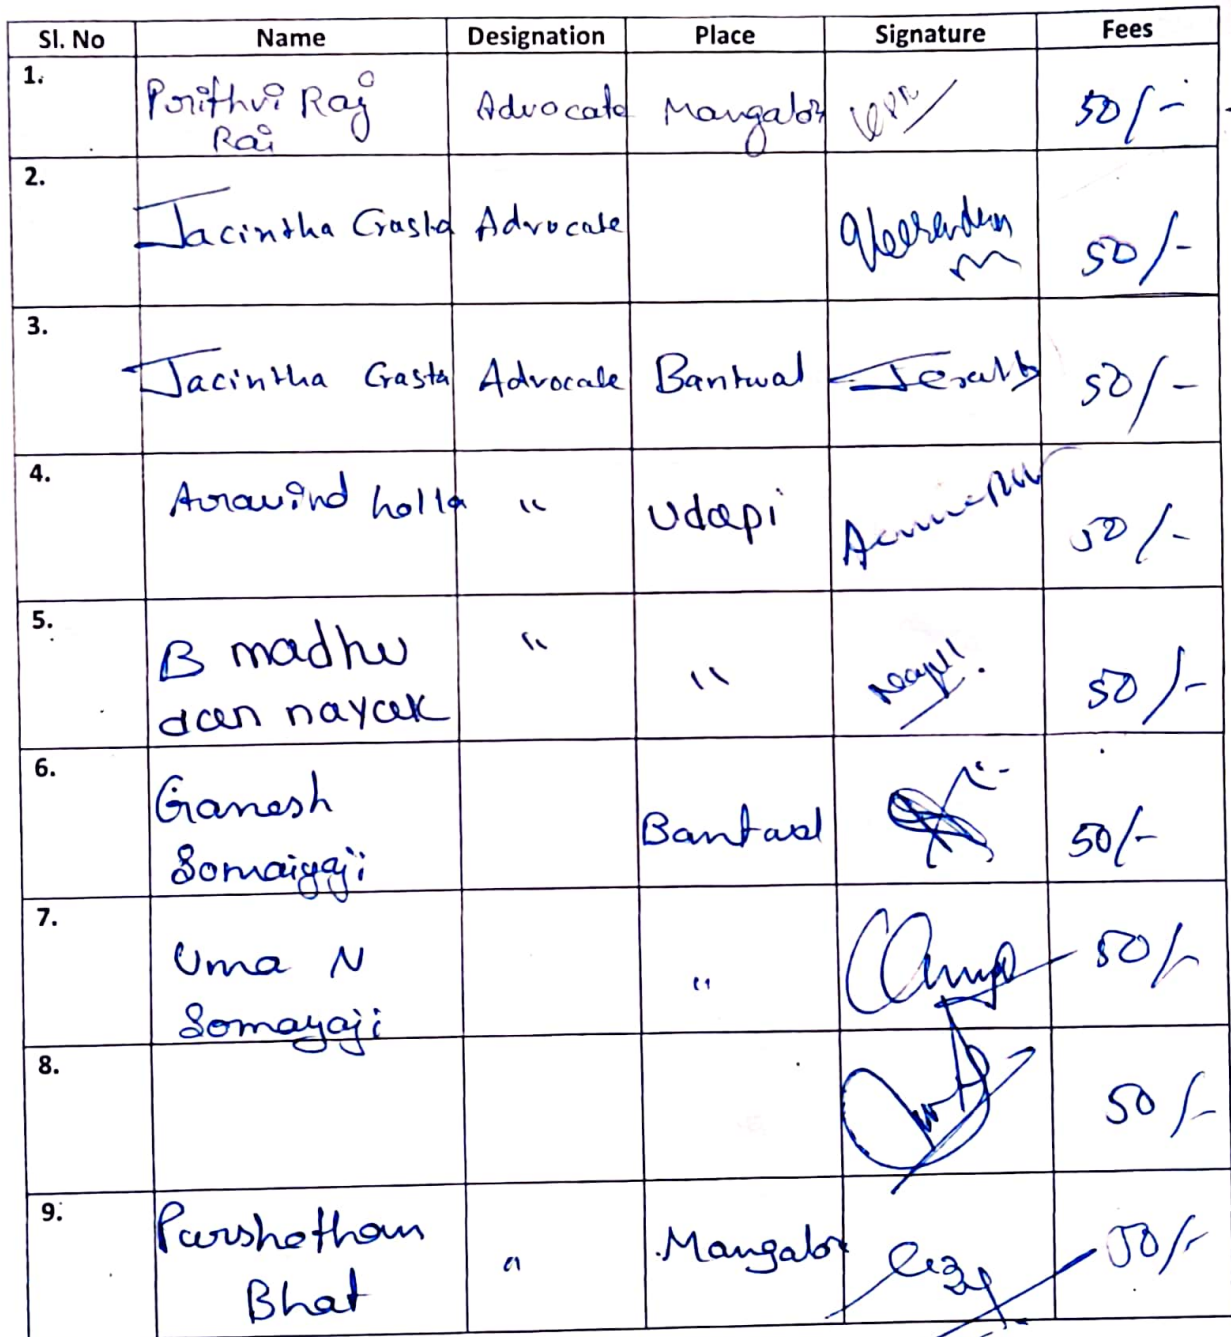 Sl. No Name Designation Place Signature Fees
1. Prithvi Raj Advocate Mangalor 50/-
Rai
2. Jacintha Crasta Advocate 50/-
3. Jacintha Crasta Advocate Bantwal 50/-
4. Aravind holla " Udupi 50/-
5. B madhu " " 50/-
dan nayak
6. Ganesh Bantwal 50/-
Somaiyaji
7. Uma N " 50/-
Somayaji
8. 50/-
9. Purshotham " Mangalor 50/-
Bhat